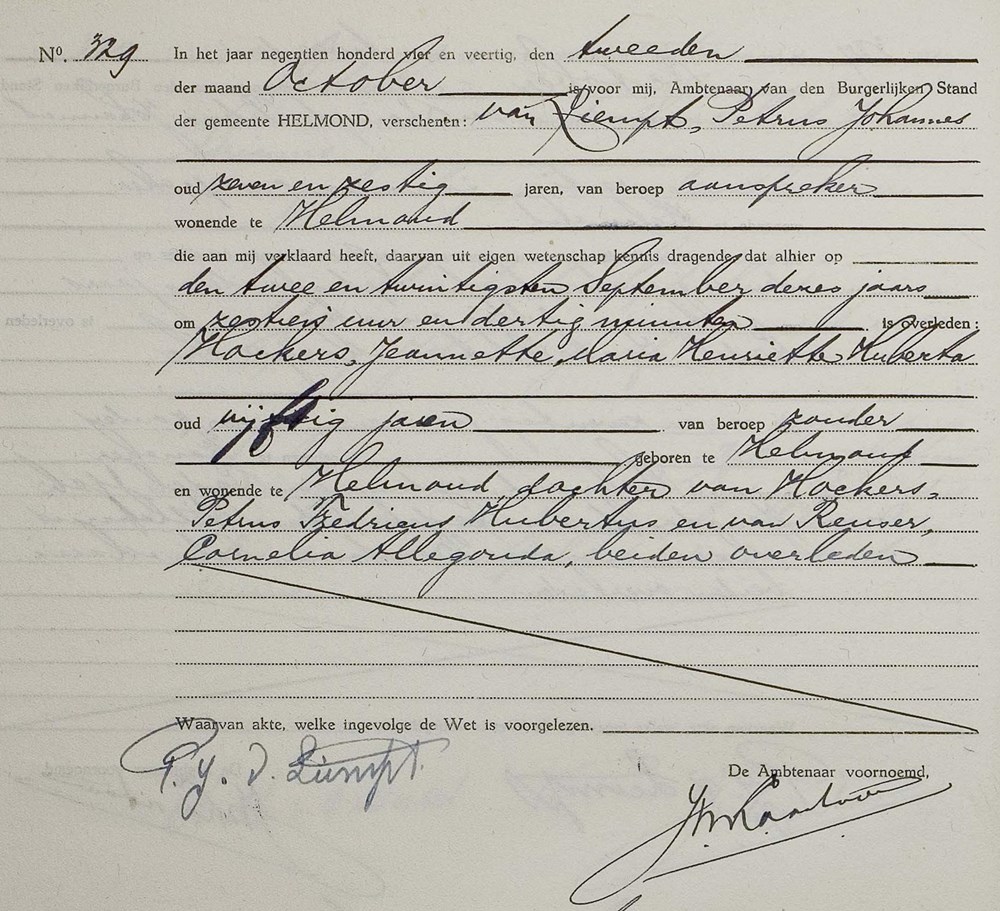 Nº. 329 In het jaar negentien honderd vier en veertig, den tweeden
der maand October is voor mij, Ambtenaar van den Burgerlijken Stand
der gemeente HELMOND, verschenen: van Liempt, Petrus Johannes
oud zeven en zestig jaren, van beroep aanspreker
wonende te Helmond
die aan mij verklaard heeft, daarvan uit eigen wetenschap kennis dragende, dat alhier op
den twee en twintigsten September dezes jaars
om zestien uur en dertig minuten is overleden:
Hockers, Jeannette Maria Henriette Huberta
oud vijftig jaren van beroep zonder
geboren te Helmond
en wonende te Helmond, dochter van Hockers,
Petrus Fredricus Hubertus en van Reuser,
Cornelia Allegonda, beiden overleden
Waarvan akte, welke ingevolge de Wet is voorgelezen.
P. J. v. Liempt.
De Ambtenaar voornoemd,